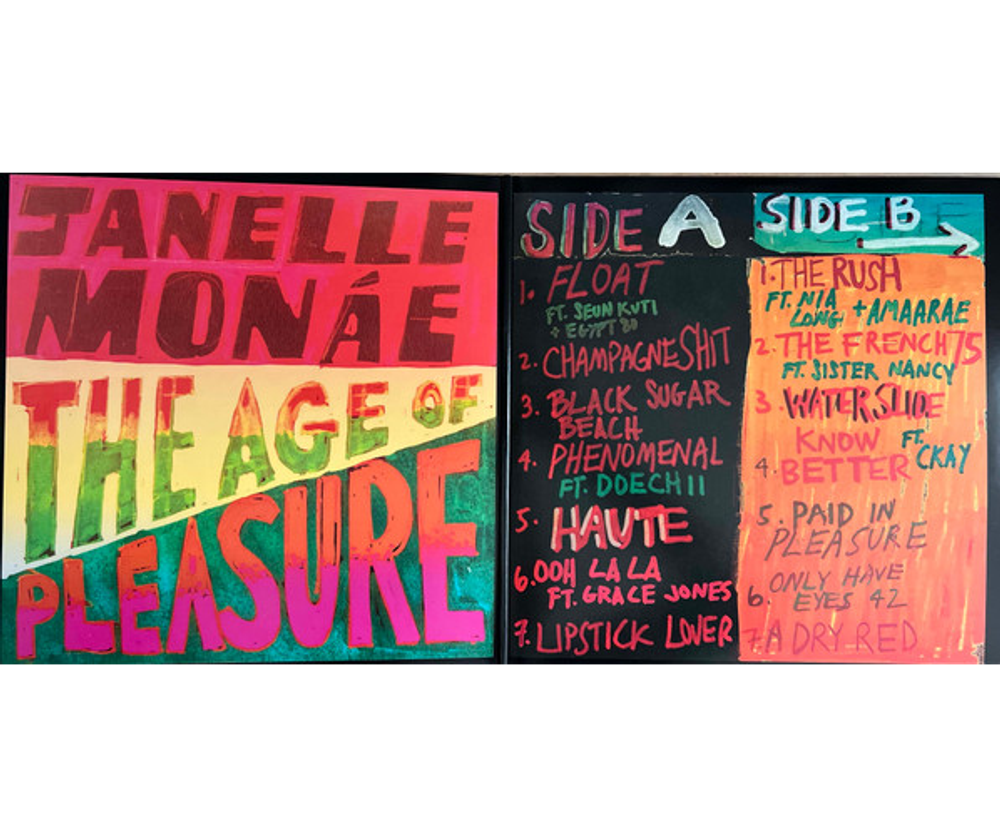 JANELLE
MONÁE
THE AGE OF
PLEASURE
SIDE A
1. FLOAT
FT. SEUN KUTI
+ EGYPT 80
2. CHAMPAGNE SHIT
3. BLACK SUGAR
BEACH
4. PHENOMENAL
FT. DOECHII
5. HAUTE
6. OOH LA LA
FT. GRACE JONES
7. LIPSTICK LOVER
SIDE B
1. THE RUSH
FT. NIA
LONG + AMAARAE
2. THE FRENCH 75
FT. SISTER NANCY
3. WATERSLIDE
4. KNOW
BETTER FT. CKAY
5. PAID IN
PLEASURE
6. ONLY HAVE
EYES 42
7. A DRY RED